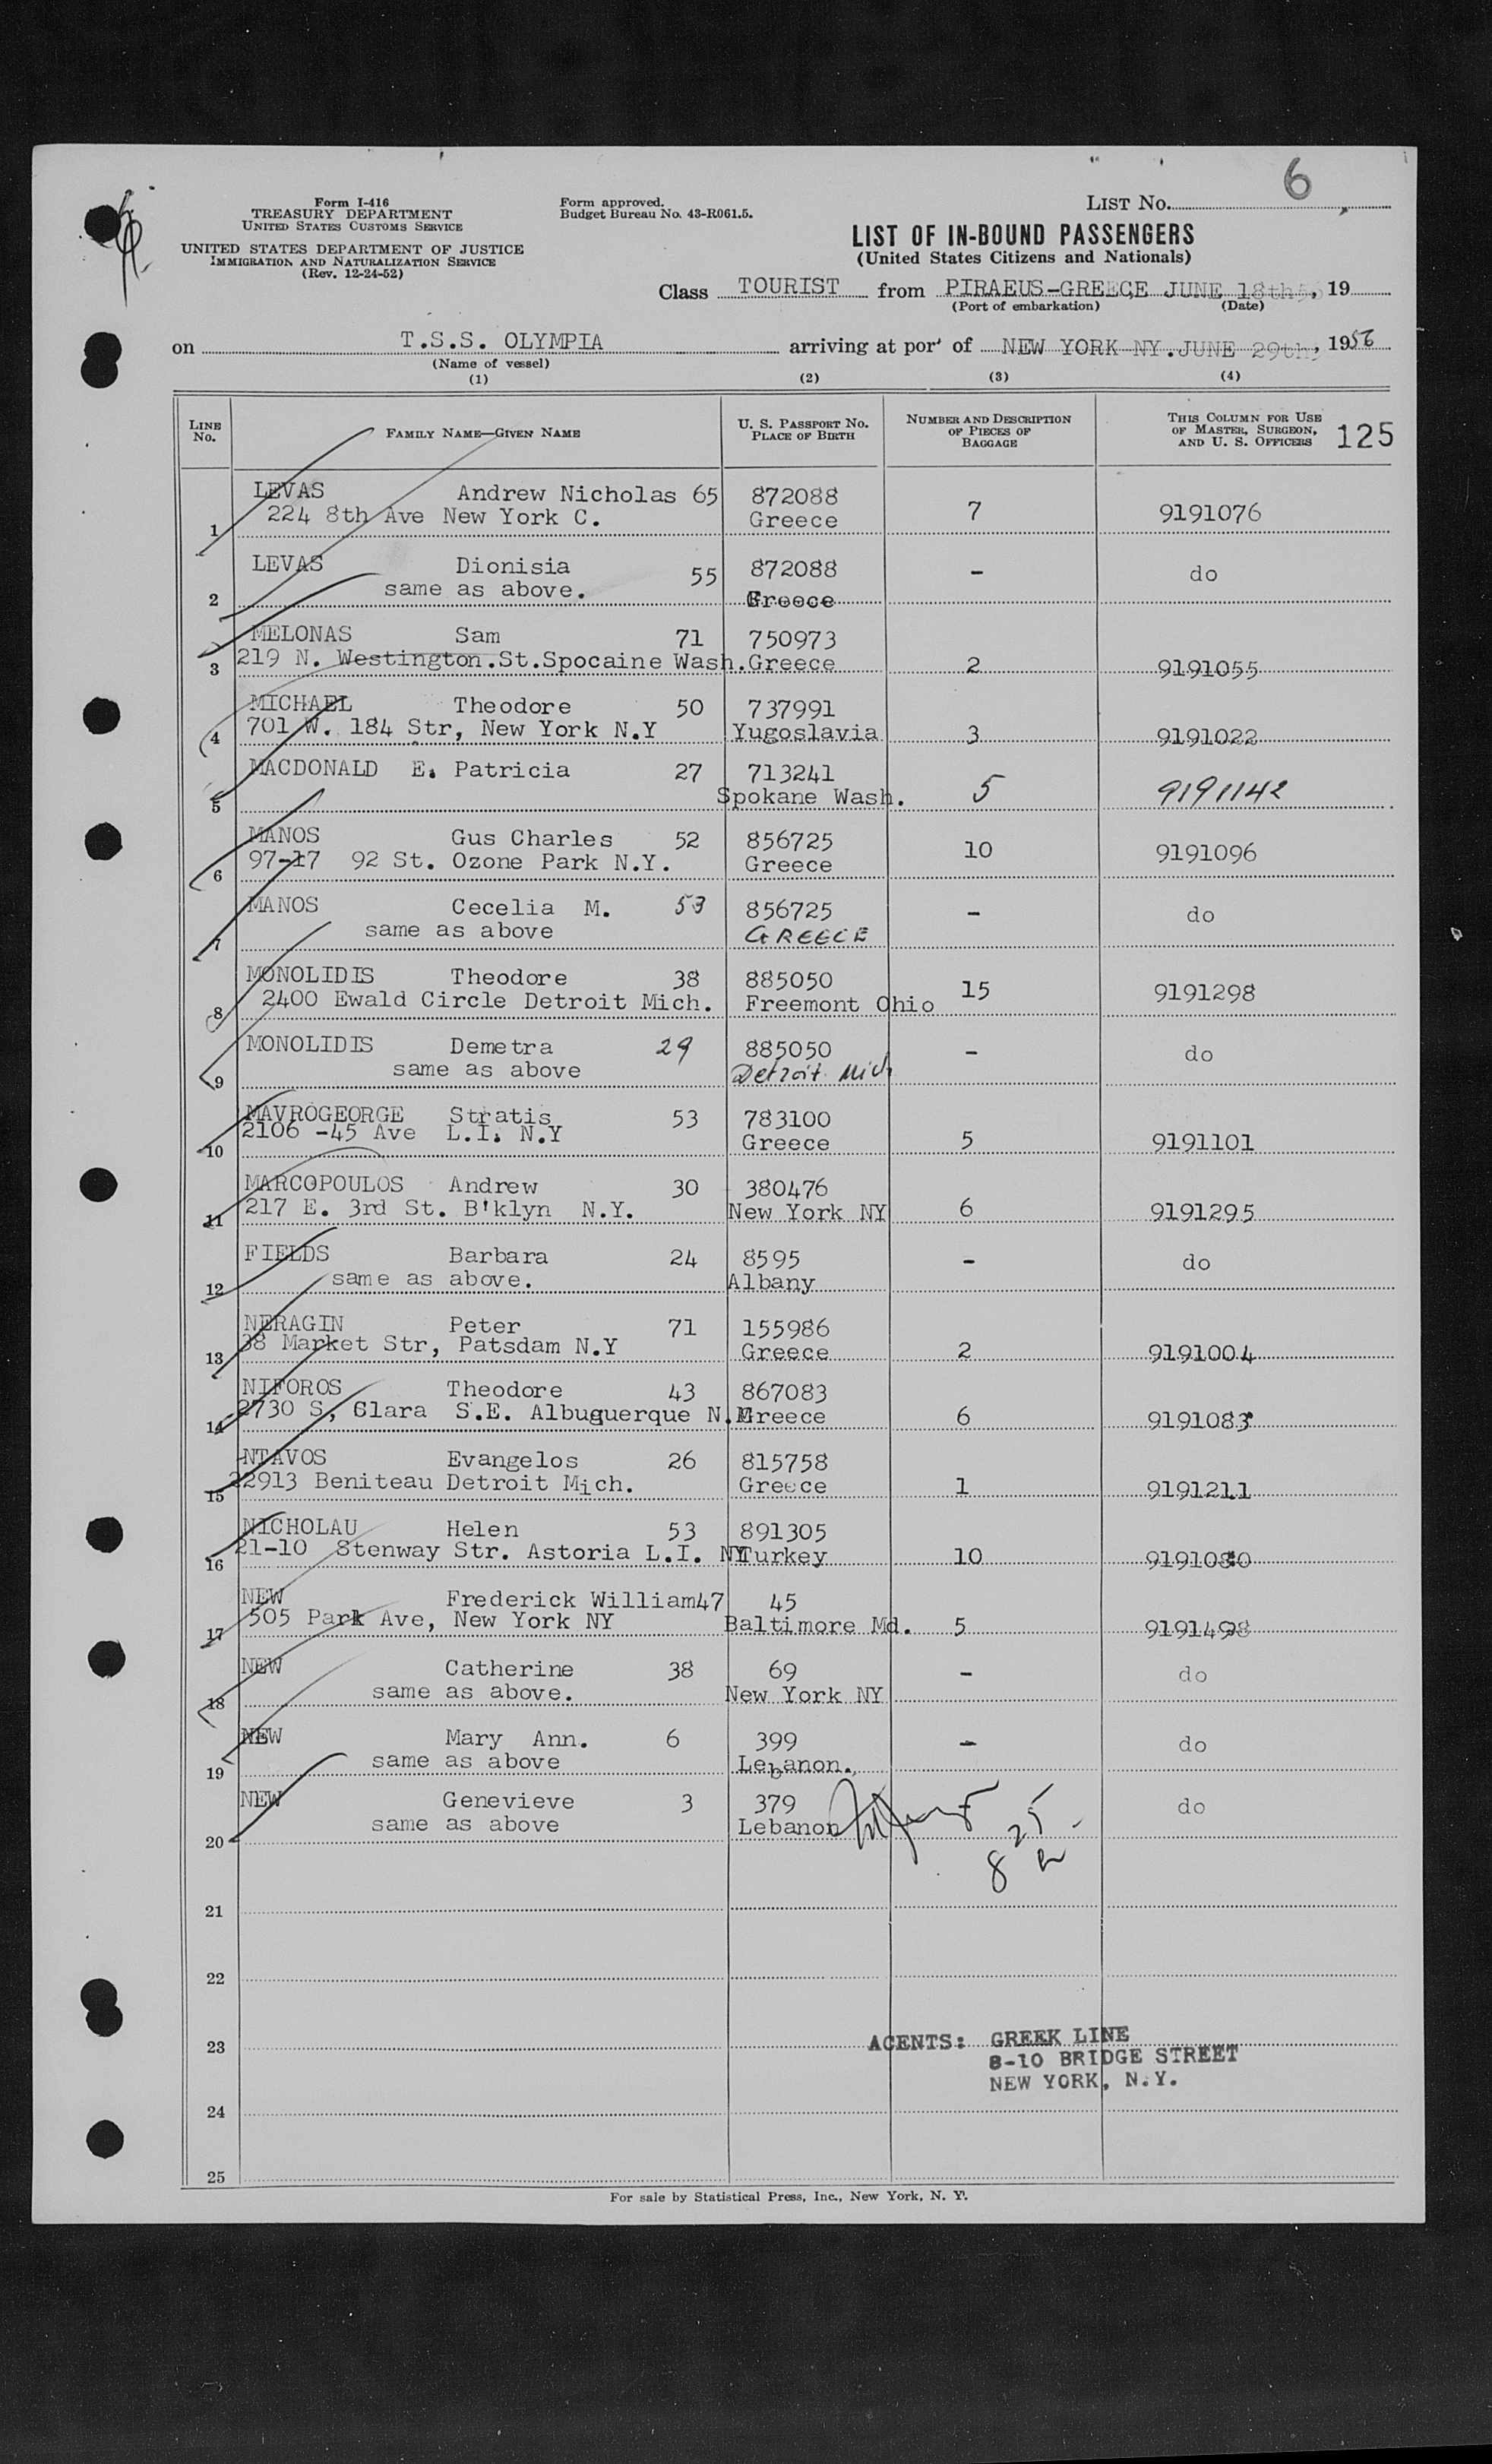 6
Form I-416
TREASURY DEPARTMENT
UNITED STATES CUSTOMS SERVICE
UNITED STATES DEPARTMENT OF JUSTICE
IMMIGRATION AND NATURALIZATION SERVICE
(Rev. 12-24-52)
Form approved.
Budget Bureau No. 43-R061.5.
LIST No.
LIST OF IN-BOUND PASSENGERS
(United States Citizens and Nationals)
Class TOURIST from PIRAEUS-GREECE JUNE 18th 56, 19
(Port of embarkation) (Date)
on T.S.S. OLYMPIA arriving at port of NEW YORK NY. JUNE 29th, 1956
(Name of vessel)
(1) (2) (3) (4)
LINE No. FAMILY NAME—GIVEN NAME U. S. PASSPORT No. PLACE OF BIRTH NUMBER AND DESCRIPTION OF PIECES OF BAGGAGE THIS COLUMN FOR USE OF MASTER, SURGEON, AND U. S. OFFICERS 125
LEVAS Andrew Nicholas 65 872088
1 224 8th Ave New York C. Greece 7 9191076
LEVAS Dionisia 55 872088 - do
2 same as above. Greece
MELONAS Sam 71 750973
3 219 N. Westington.St.Spocaine Wash. Greece 2 9191055
MICHAEL Theodore 50 737991
4 701 W. 184 Str, New York N.Y Yugoslavia 3 9191022
MACDONALD E. Patricia 27 713241
5 Spokane Wash. 5 9191142
MANOS Gus Charles 52 856725
6 97-17 92 St. Ozone Park N.Y. Greece 10 9191096
MANOS Cecelia M. 53 856725 - do
7 same as above GREECE
MONOLIDIS Theodore 38 885050
8 2400 Ewald Circle Detroit Mich. Freemont Ohio 15 9191298
MONOLIDIS Demetra 29 885050 - do
9 same as above Detroit Mich
MAVROGEORGE Stratis 53 783100
10 2106 -45 Ave L.I. N.Y Greece 5 9191101
MARCOPOULOS Andrew 30 380476
11 217 E. 3rd St. B'klyn N.Y. New York NY 6 9191295
FIELDS Barbara 24 8595 - do
12 same as above. Albany
NERAGIN Peter 71 155986
13 38 Market Str, Patsdam N.Y Greece 2 9191004
NIFOROS Theodore 43 867083
14 2730 S, Clara S.E. Albuguerque N.M Greece 6 9191083
NTAVOS Evangelos 26 815758
15 22913 Beniteau Detroit Mich. Greece 1 9191211
NICHOLAU Helen 53 891305
16 21-10 Stenway Str. Astoria L.I. NY Turkey 10 9191080
NEW Frederick William 47 45
17 505 Park Ave, New York NY Baltimore Md. 5 9191498
NEW Catherine 38 69 - do
18 same as above. New York NY
NEW Mary Ann. 6 399 - do
19 same as above Lebanon.
NEW Genevieve 3 379 do
20 same as above Lebanon
825
8
21
22
23 AGENTS: GREEK LINE
8-10 BRIDGE STREET
NEW YORK, N.Y.
24
25
For sale by Statistical Press, Inc., New York, N. Y.